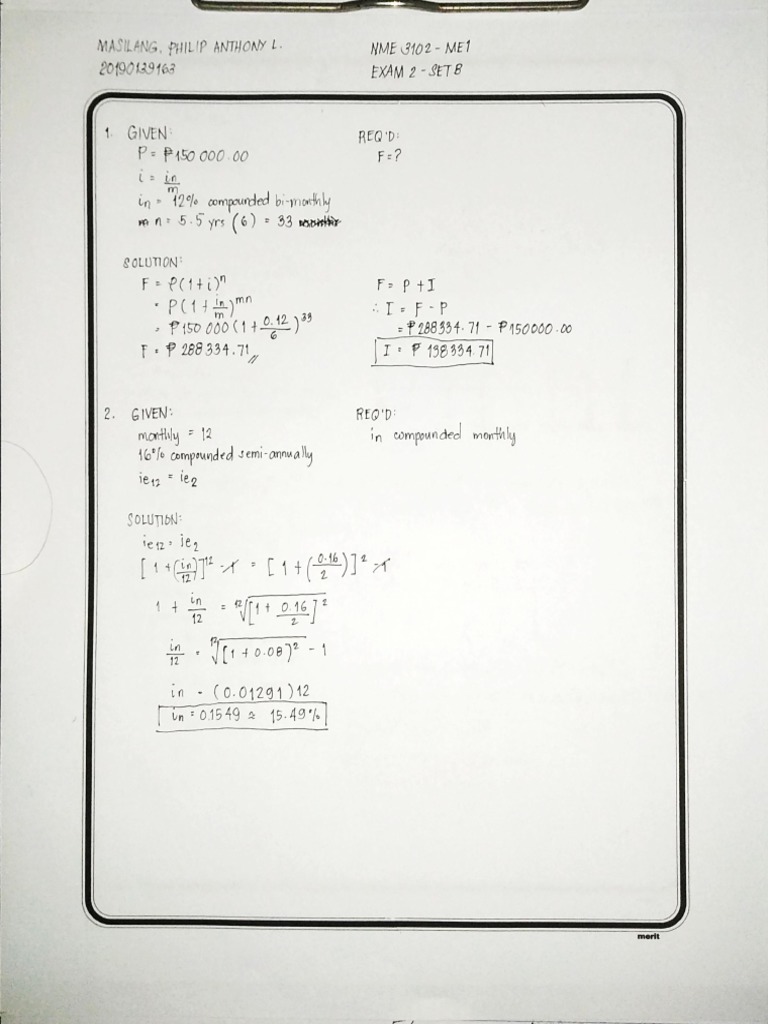 MASILANG, PHILIP ANTHONY L. NME 3102 - ME1
20190139163 EXAM 2 - SET B
1. GIVEN: REQ'D:
P = ₱150 000.00 F = ?
i = in/m
in = 12% compounded bi-monthly
n = 5.5 yrs (6) = 33
SOLUTION:
F = P(1+i)ⁿ F = P + I
= P(1 + in/m)^mn ∴ I = F - P
= ₱150 000 (1 + 0.12/6)^33 = ₱288334.71 - ₱150000.00
F = ₱ 288 334.71 I = ₱ 138334.71
2. GIVEN: REQ'D:
monthly = 12 in compounded monthly
16% compounded semi-annually
ie₁₂ = ie₂
SOLUTION:
ie₁₂ = ie₂
[1 + (in/12)]^12 - 1 = [1 + (0.16/2)]^2 - 1
1 + in/12 = ¹²√[1 + 0.16/2]²
in/12 = ¹²√[1 + 0.08)² - 1
in = (0.01291)12
in = 0.1549 ≈ 15.49%
merit